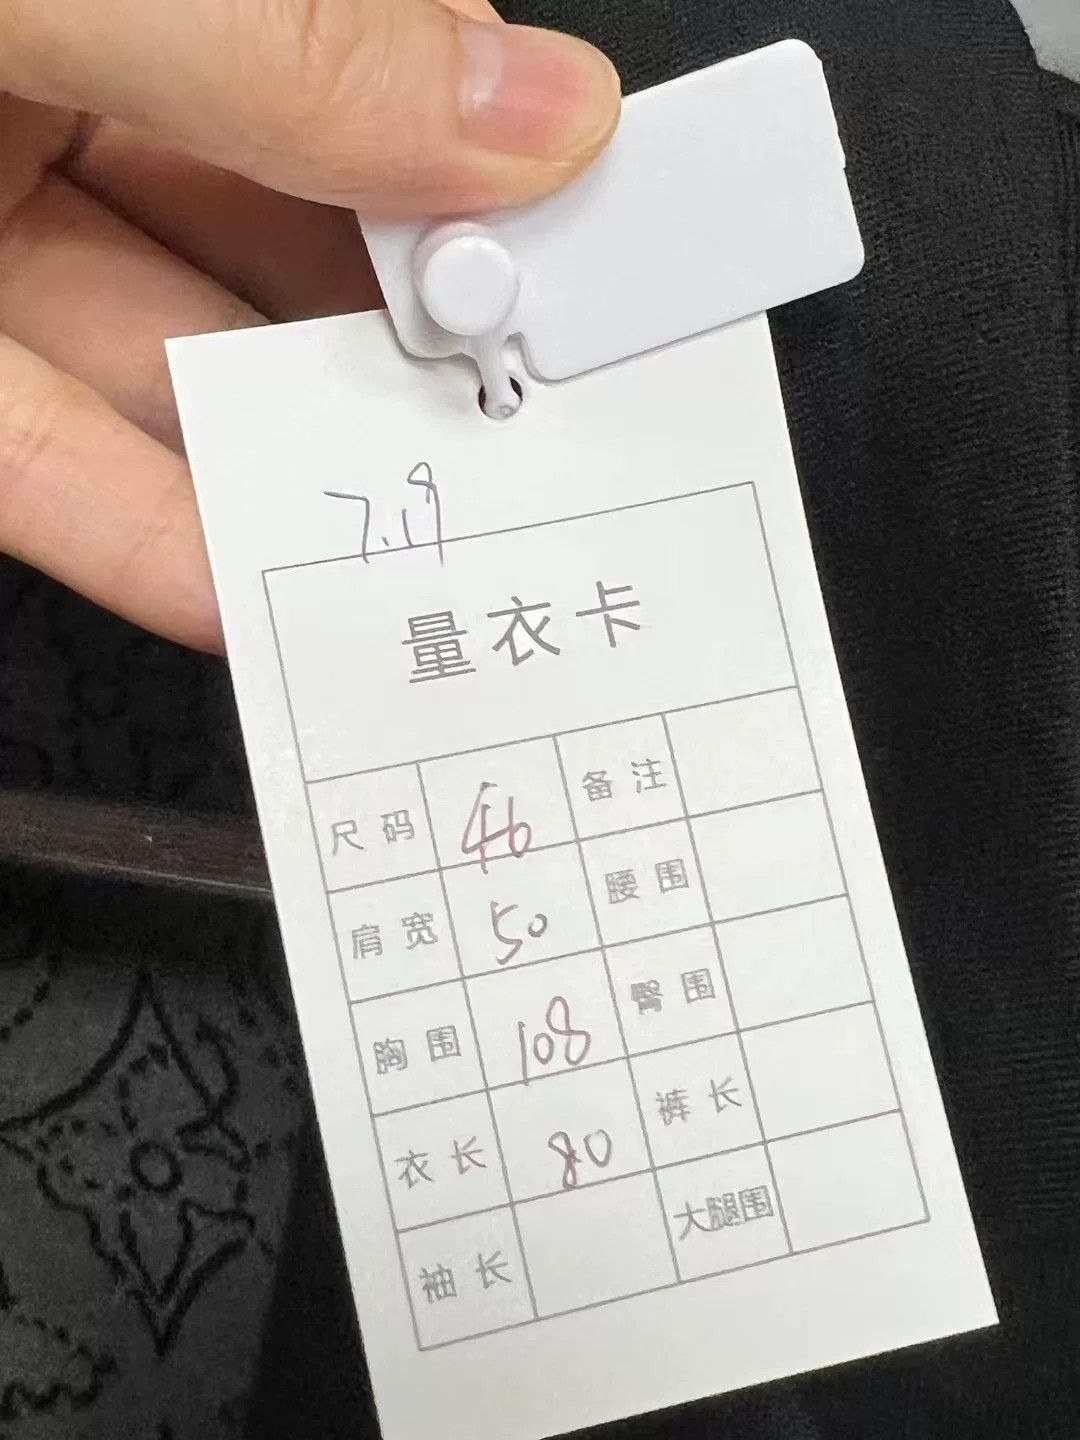 7.19
量衣卡
尺码 46 备注
肩宽 50 腰围
胸围 108 臀围
衣长 80 裤长
袖长 大腿围